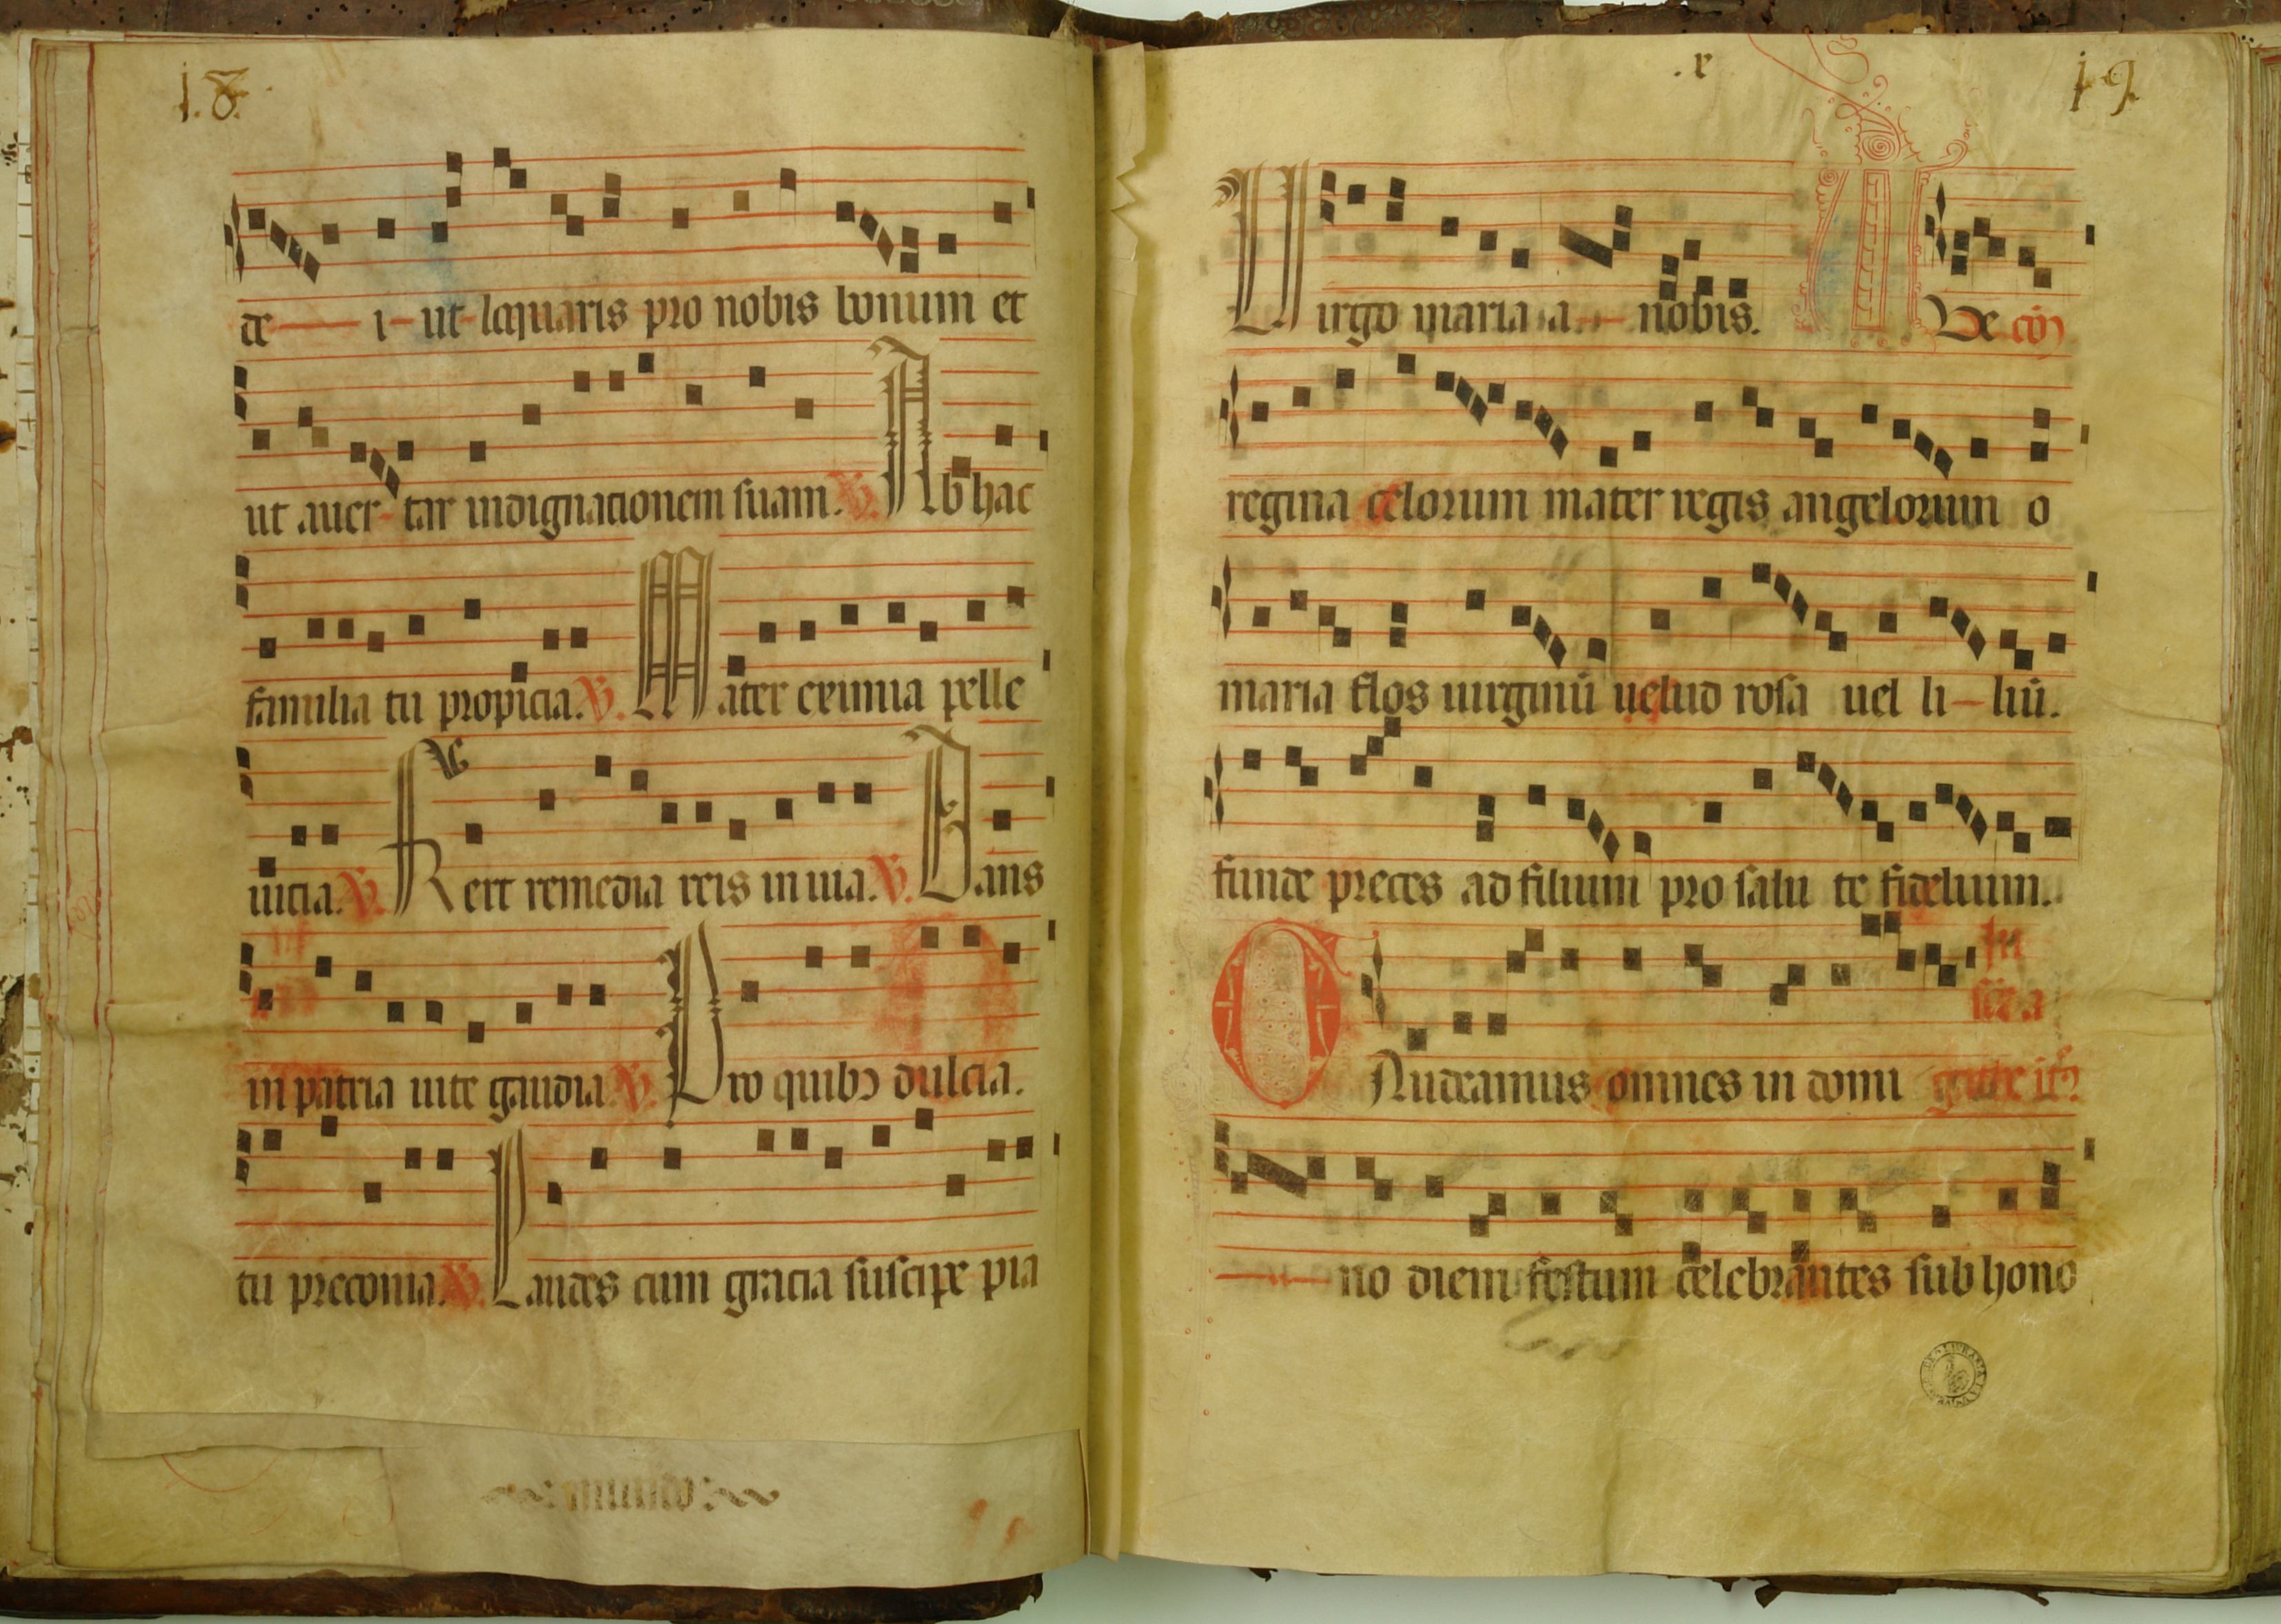 18.
de i ut loquaris pro nobis bonum et
ut auer tar indignacionem suam. V. Ab hac
familia tu propicia. V. Mater eximia pelle
uicia. V. Fert remedia reis in uia. V. Dans
in patria uite gaudia. V. Pro quibꝰ dulcia.
tu preconia. V. Laudes cum gracia suscipe pia
.x
19
Virgo maria a nobis. Ve
regina celorum mater regis angelorum o
maria flos uirginū uelud rosa uel li liū.
funde preces ad filium pro salu te fidelium.
In
Gaudeamus omnes in domi
no diem festum celebrantes sub hono